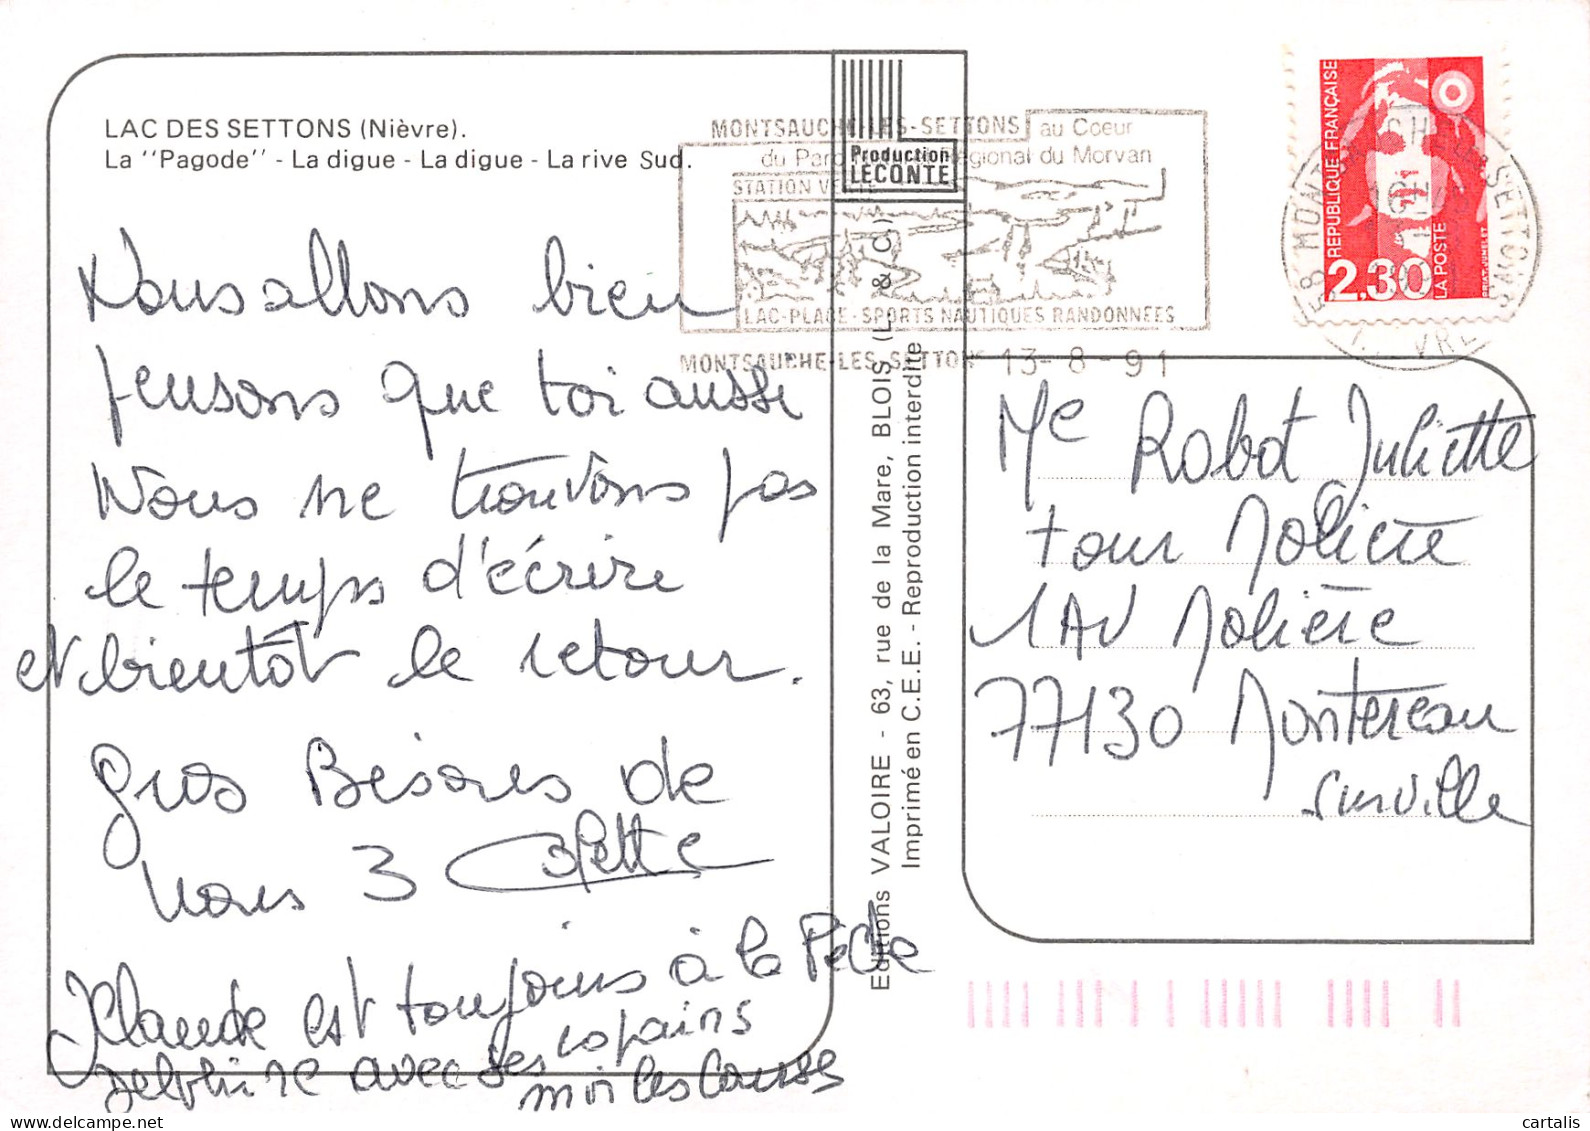 LAC DES SETTONS (Nièvre).
La "Pagode" - La digue - La digue - La rive Sud.
Nous allons bien
pensons que toi aussi
Nous ne trouvons pas
le temps d'écrire
et bientôt le retour.
gros Bésores de
nous 3 Colette
Klaude est toujours à la Pêche
Delphine avec ses copains
moi les Courses
Production
LECONTE
Editions VALOIRE - 63, rue de la Mare, BLOIS (L. & C.)
Imprimé en C.E.E. - Reproduction interdite
MONTSAUCHE-LES-SETTONS au Coeur
du Parc Régional du Morvan
STATION VERTE
LAC-PLAGE-SPORTS NAUTIQUES RANDONNEES
MONTSAUCHE-LES-SETTONS 13-8-91
REPUBLIQUE FRANÇAISE
2,30
LA POSTE
58 MONTSAUCHE-LES-SETTONS
Me Robot Juliette
tour Molière
1 AV Molière
77130 Montereau
surville
cartalis
www.delcampe.net